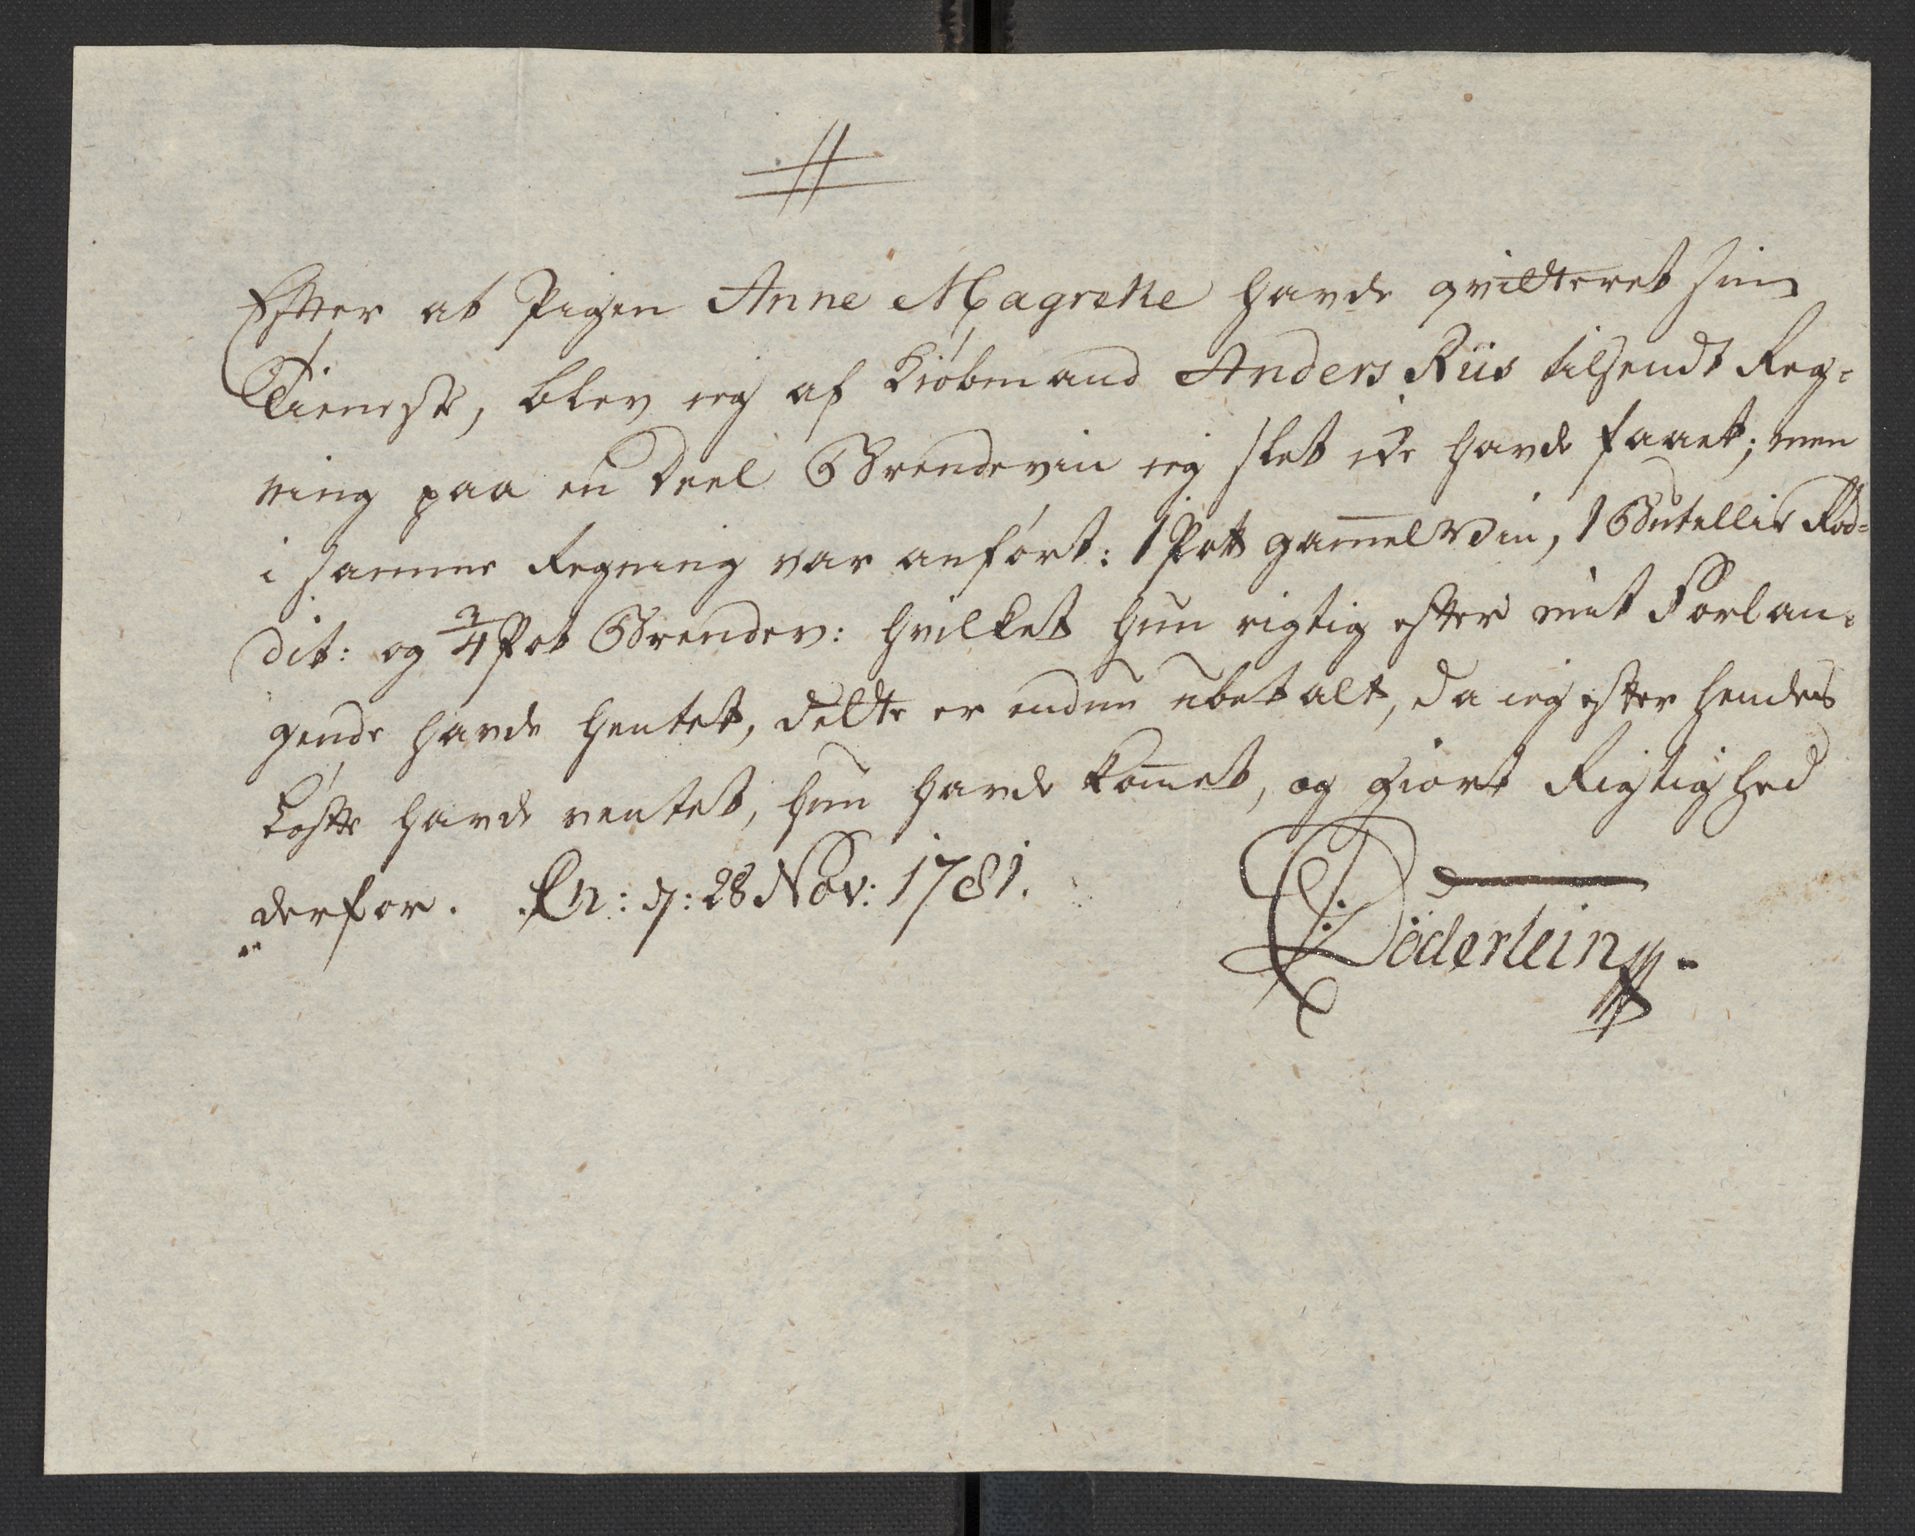 Efter at Pigen Anne Magrethe havde qvitteret sin
Tieneste, blev ieg af Kiöbmand Anders Riis tilsendt Reg=
ning paa en Deel Brendeviin ieg slet icke havde faaet; men
i samme Regning var anfört: 1 Pott gam̄el Viin, 1 Butellie Röd=
dit: og 3/4 Pot Brendev: hvilket hun rigtig efter mit Forlan=
gende havde hentet, dette er endnu ubetalt, da ieg efter hendes
Löfte havde ventet, hun havde kom̄et, og giort Rigtighed
derfor. d: 28 Nov: 1781.
Döderlein